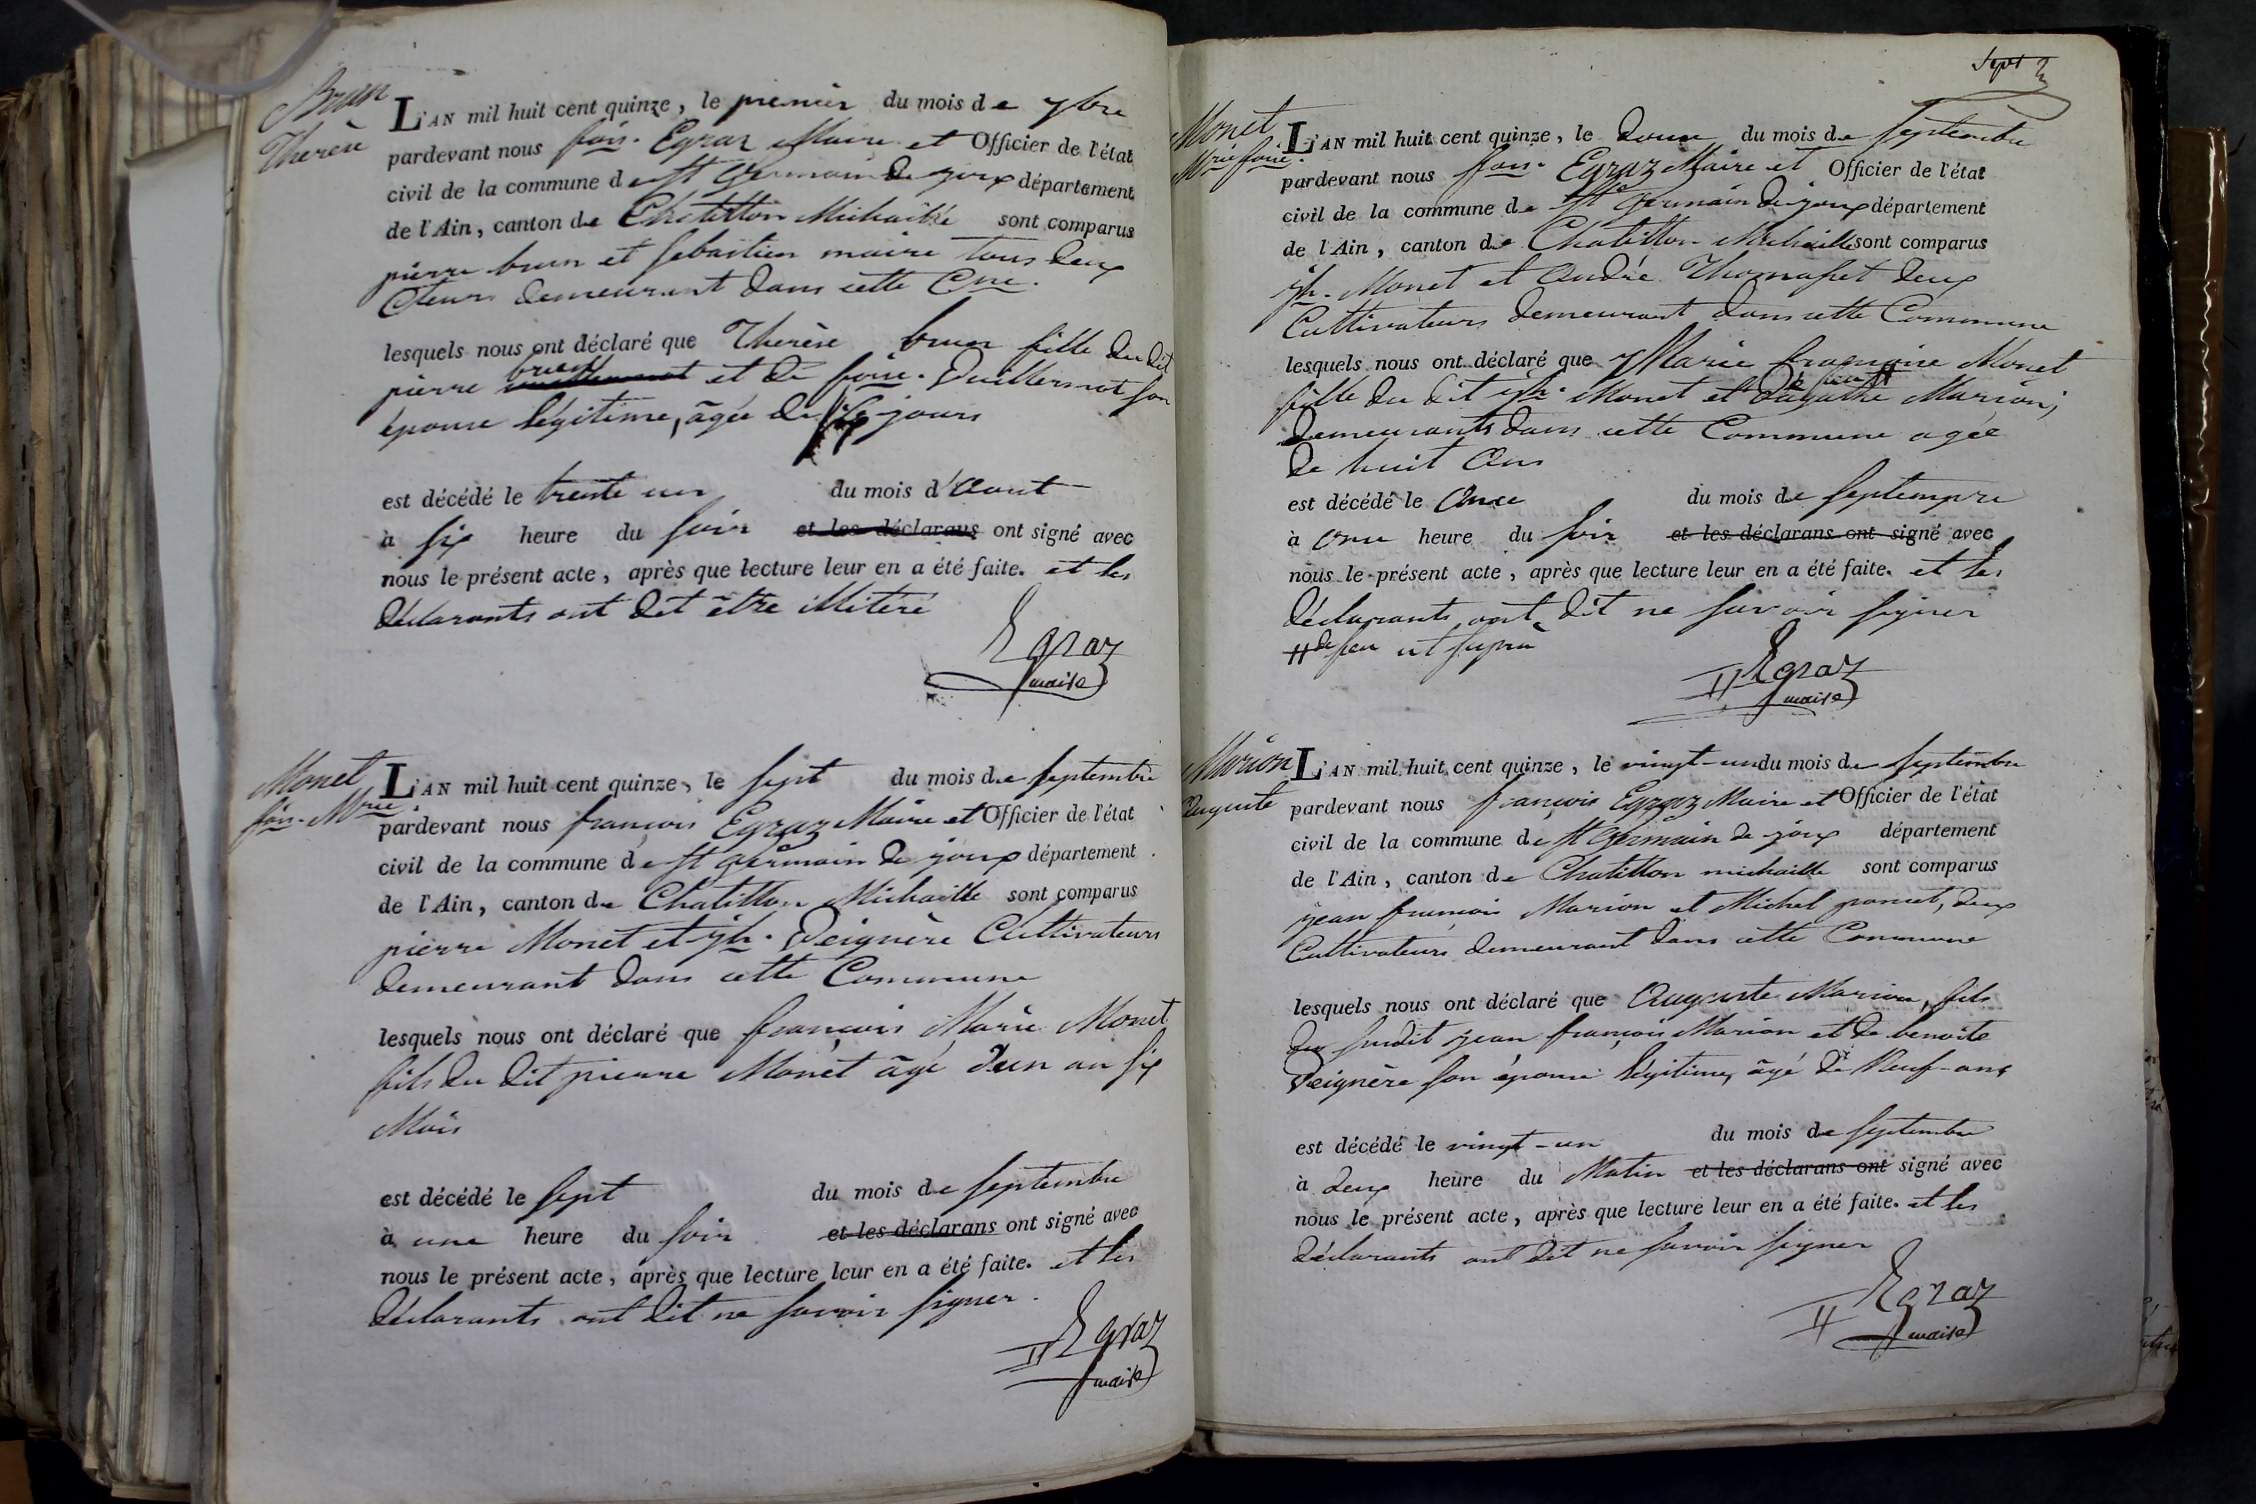 Brun
Therèse
L'AN mil huit cent quinze, le premier du mois de 7bre
pardevant nous fois. Egraz Maire et Officier de l'état
civil de la commune de St germain de joux département
de l'Ain, canton de Chatillon Michaille sont comparus
pierre brun et Sebastien maire tous deux
Cteurs demeurant dans cette Cne.
lesquels nous ont déclaré que Therèse brun fille du dit
pierre brun et de foise. Vuillermot son
épouse légitime, âgée de six jours
est décédé le trente un du mois d'Aout
à six heure du soir et les déclarans ont signé avec
nous le présent acte, après que lecture leur en a été faite. et les
déclarants ont dit être illitéré
Egraz
maire
Monet
fois. Mrie
L'AN mil huit cent quinze, le sept du mois de septembre
pardevant nous françois Egraz Maire et Officier de l'état
civil de la commune de St germain de joux département
de l'Ain, canton de Chatillon Michaille sont comparus
pierre Monet et jh. Peignère Cultivateurs
demeurant dans cette Commune
lesquels nous ont déclaré que françois Marie Monet
fils du dit pierre Monet âgé d'un an six
Mois
est décédé le sept du mois de septembre
à une heure du soir et les déclarans ont signé avec
nous le présent acte, après que lecture leur en a été faite. et les
déclarants ont dit ne savoir signer.
Egraz
maire
Sept
Monet
Mrie foise.
L'AN mil huit cent quinze, le douze du mois de septembre
pardevant nous fois. Egraz Maire et Officier de l'état
civil de la commune de St germain de joux département
de l'Ain, canton de Chatillon Michaille sont comparus
jh. Monet et André Thomasset deux
Cultivateurs demeurant dans cette Commune
lesquels nous ont déclaré que Marie françoise Monet
fille du dit jh. Monet et d'agathe Marion,
demeurants dans cette Commune agée
de huit Ans
est décédé le Onze du mois de septempre
à onze heure du soir et les déclarans ont signé avec
nous le présent acte, après que lecture leur en a été faite. et les
déclarants ont dit ne savoir signer
de feu ut suprà
Egraz
maire
Marion
Auguste
L'AN mil huit cent quinze, le vingt-un du mois de septembre
pardevant nous françois Egraz Maire et Officier de l'état
civil de la commune de St germain de joux département
de l'Ain, canton de Chatillon michaille sont comparus
jean françois Marion et Michel poncet, deux
Cultivateurs demeurant dans cette Commune
lesquels nous ont déclaré que Auguste Marion, fils
du susdit jean françois Marion et de benoite
Peignère son épouse légitime, âgé de Neuf-ans
est décédé le vingt-un du mois de septembre
à deux heure du Matin et les déclarans ont signé avec
nous le présent acte, après que lecture leur en a été faite. et les
déclarants ont dit ne savoir signer
Egraz
maire